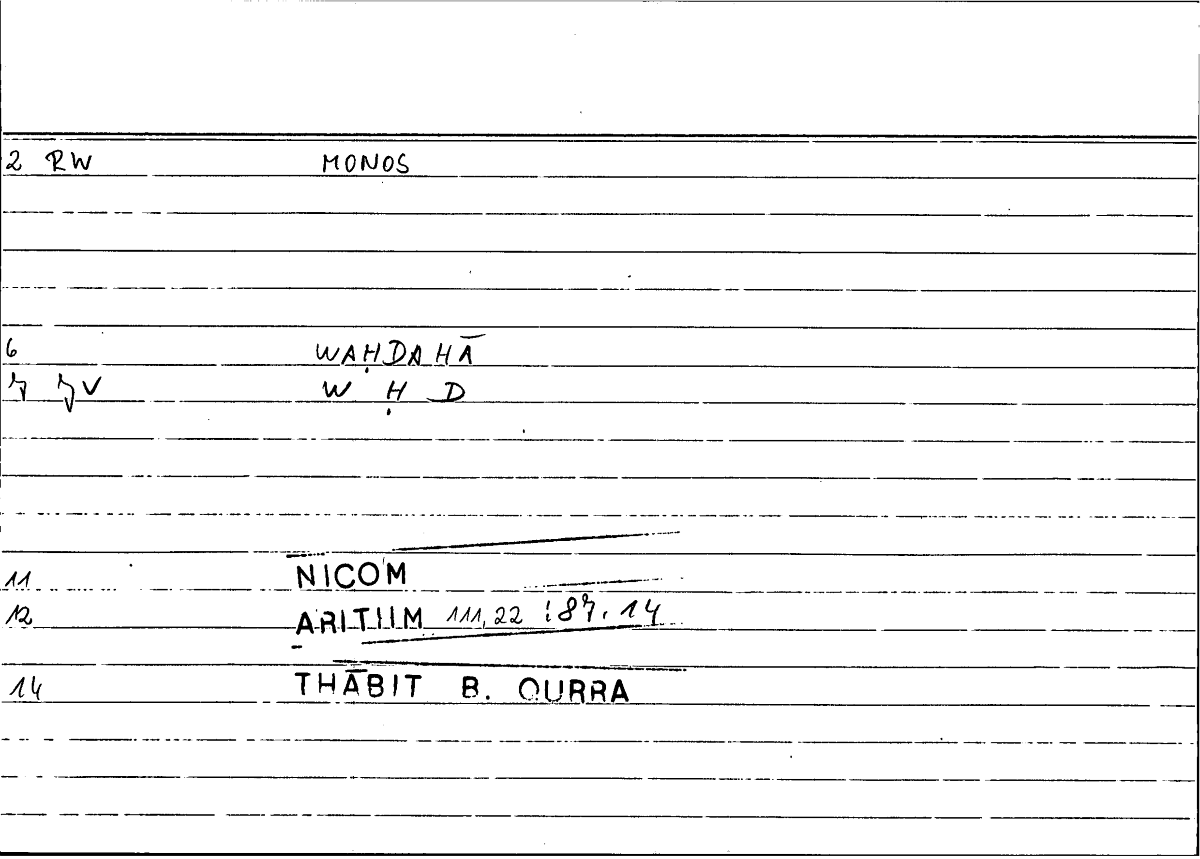 2 RW MONOS
6 WAḤDAHĀ
7 7V W Ḥ D
11 NICOM
12 ARITHM 111,22 : 87,14
14 THĀBIT B. QURRA